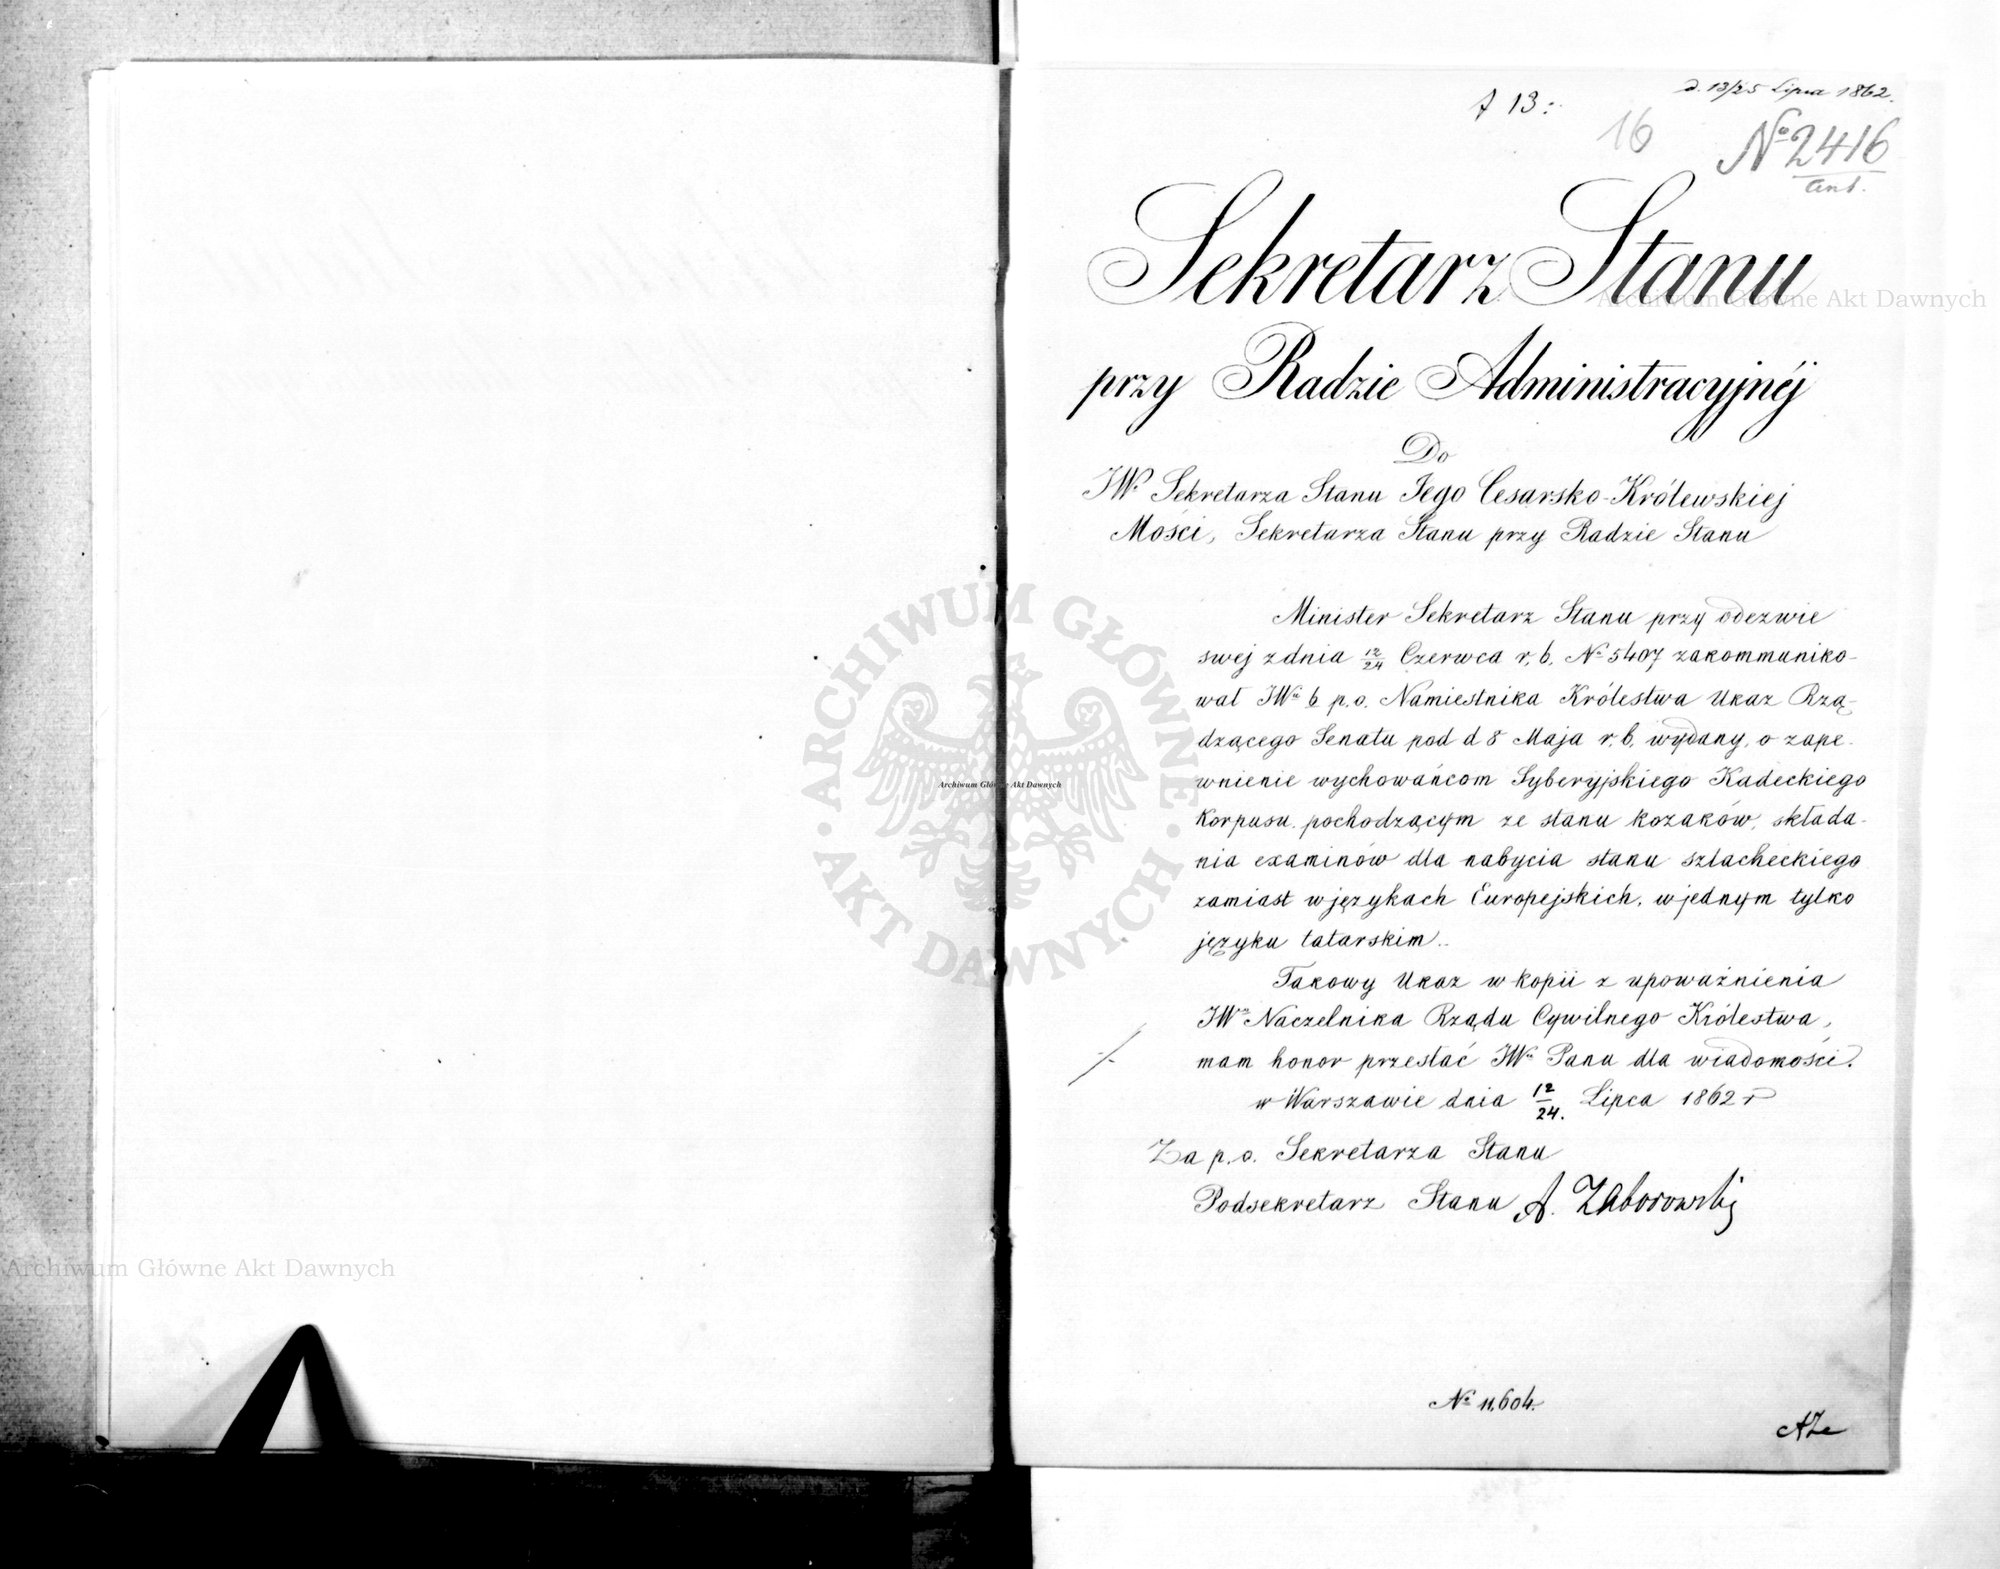 d. 13/25 Lipca 1862.
f 13:
16
No 2416
Sekretarz Stanu
przy Radzie Administracyjnéj
Do
JWo Sekretarza Stanu Jego Cesarsko-Królewskiej
Mości, Sekretarza Stanu przy Radzie Stanu
Minister Sekretarz Stanu przy odezwie
swej z dnia 12/24 Czerwca r. b. No 5407 zakommuniko-
wał JWu b p. o. Namiestnika Królestwa Ukaz Rzą-
dzącego Senatu pod d 8 Maja r. b. wydany, o zape-
wnienie wychowańcom Syberyjskiego Kadeckiego
Korpusu. pochodzącym ze stanu kozaków, składa-
nia examinów dla nabycia stanu szlacheckiego
zamiast w językach Europejskich, w jednym tylko
języku tatarskim..
Takowy Ukaz w kopii z upoważnienia
JWo Naczelnika Rządu Cywilnego Królestwa,
mam honor przesłać JWu Panu dla wiadomości.
w Warszawie dnia 12/24. Lipca 1862 r
Za p. o. Sekretarza Stanu
Podsekretarz Stanu A. Zaborowski
No 11,604.
Archiwum Główne Akt Dawnych
ARCHIWUM GŁÓWNE
· AKT DAWNYCH ·
Archiwum Główne Akt Dawnych
Archiwum Główne Akt Dawnych